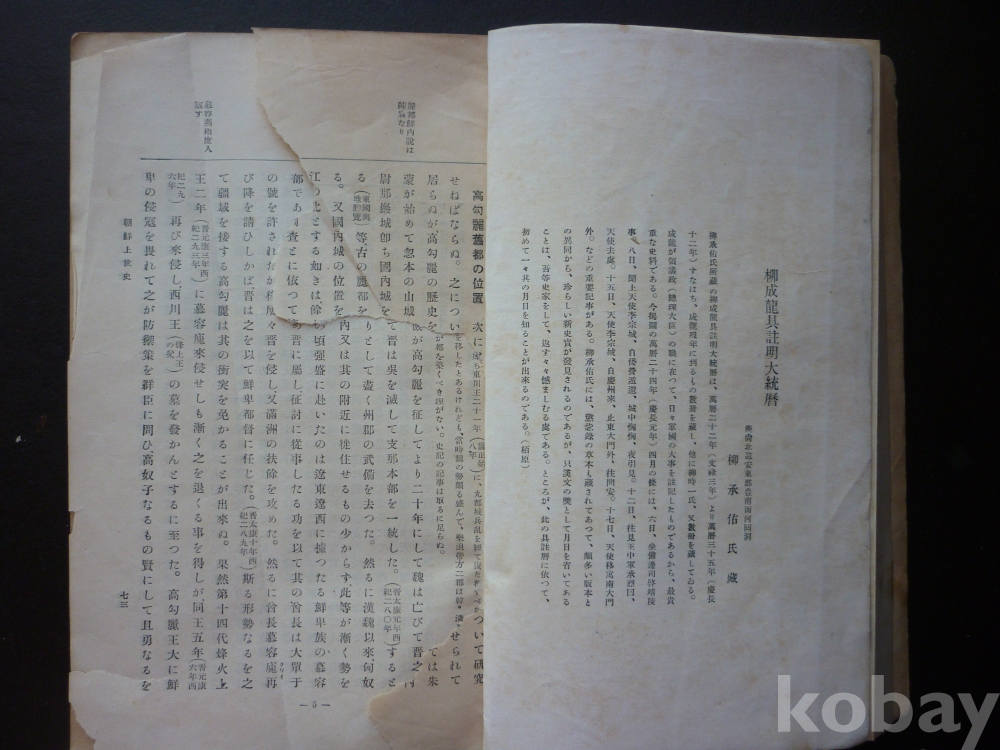 柳成龍具註明大統曆
慶尙北道安東郡豊南面河回洞
柳承佑氏藏
柳承佑氏所藏の柳成龍具註明大統曆は、萬曆二十二年(文祿三年)より萬曆三十五年(慶長
十二年)すなはち、成龍歿年に到るもの數冊を藏し、他に柳時一氏、又數冊を藏してゐる。
成龍が領議政(總理大臣)の職に在つて、日々軍國の大事を註記したものであるから、最貴
重な史料である。今揭圖の萬曆二十四年(慶長元年)四月の條には、六日、坐備邊司啓靖陵
事、八日、聞上天使李宗城、自倭營逃還、城中恟恟、夜引見。十二日、往見王中軍承烈曰、
天使去處。十五日、天使李宗城、自慶州來、止東大門外、往問安。十七日、天使移寓南大門
外。などの重要記事がある。柳承佑氏には、懲毖錄の草本も藏されてあつて、頗多い版本と
の異同から、珍らしい新史實が發見されるのであるが、只漢文の弊として月日を省いてある
ことは、吾等史家をして、返す々々憾ましむる處である。ところが、此の具註曆に依つて、
初めて一々其の月日を知ることが出來るのである。(栢原)
高勾麗舊都の位置 次に
ついて硏究
せねばならぬ。之につい
居らぬが、高勾麗の歷史を
ては朱
蒙が始めて忽本の山城
が高勾麗を征してより二十年にして魏は亡びて晋之
尉那巖城卽ち國內城を
て晋は吳を滅して支那本部を一統した。(晋太康元年西紀二八〇年)すると
る(東國輿地勝覽)等古の麗都を
りとして盡く州郡の武備を去つた。然るに漢魏以來匈奴
る。又國內城の位置を
內又は其の附近に徙住せるもの少からず此等が漸く勢を
江の北とする如きは、餘
頃强盛に赴いたのは遼東遼西に據つたる鮮卑族の慕容
部であ
晋に屬し征討に從事したる功を以て其の酋長は大單于
の號を許されたが
晋を侵し又滿洲の扶餘を攻めた。然るに酋長慕容廆再
び降を請ひしかば、晋は之を以て鮮卑都督に任じた。(晋太康十年西紀二八九年)斯る形勢なるを之
て疆域を接する高勾麗は其の衝突を免かることが出來ぬ。果然第十四代烽火上
王二年(晋元康三年西紀二九三年)に慕容廆來侵せしも漸く之を退くる事を得しが、同王五年(晋元康六年西
紀二九六年)再び來侵し西川王(烽上王の父)の墓を發かんとするに至つた。高勾麗王大に鮮
卑の侵寇を畏れて之が防禦策を群臣に問ひ高奴子なるもの賢にして且勇なるを
朝鮮上世史
七三
— 5 —
kobay